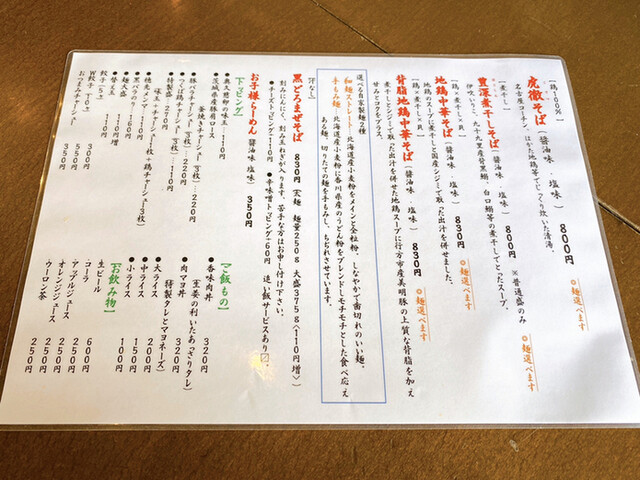 【鶏100%】
虎徹そば(醤油味・塩味) 800円 ◎麺選べます
名古屋コーチン、はかた地鶏等でじっくり炊いた清湯。
【煮干し】
豊潔煮干しそば(醤油味・塩味) 800円 ※普通盛のみ ◎麺選べます
伊吹いりこ、九十九里産背黒鰯、白口鰯等の煮干しでとったスープ。
【鶏×煮干し×貝】
地鶏中華そば(醤油味・塩味) 830円 ◎麺選べます
地鶏のスープに煮干しと国産シジミで取った出汁を併せました。
【鶏×煮干し×貝】
背脂地鶏中華そば(醤油味・塩味) 830円 ◎麺選べます
煮干しとシジミで取った出汁を併せた地鶏スープに行方市産美明豚の上質な背脂を加え
甘みとコクをプラス。
選べる自家製麺2種
細麺ストレート…北海道産小麦粉をメインと全粒粉、しなやかで歯切れのいい麺、
手もみ麺…北海道産小麦粉に香川県産のうどん粉をブレンドしモチモチとした食べ応え
ある麺、切りたての麺を手もみし、ちぢれさせています。
【汁なし】
黒どろまぜそば 830円 〈太麺 麺量250g 大盛375g(110円増)〉
刻みにんにく、刻み玉ねぎが入ります。苦手な方はお申し付け下さい。
●チーズトッピング110円 ●辛味噌トッピング60円 追い飯サービスあり
お子様らーめん(醤油味・塩味) 350円
【トッピング】
●奥久慈卵の味玉 110円
●茨城県産豚肩ロース
釜焼きチャーシュー(3枚) 220円
●豚バラチャーシュー(3枚) 220円
●つくば鶏チャーシュー(3枚) 220円
●特製盛り 270円
味玉+チャーシュー1枚+鶏チャーシュー3枚)
●穂先メンマ 110円
●黒バラのり 110円
●麺大盛 110円
●替え玉 110円
餃子(5ヶ) 350円
W餃子(10ヶ)
おつまみチャーシュー 350円
【ご飯もの】
●香味肉丼 320円
(生姜の利いたあっさりタレ)
●肉マヨ丼 320円
特製タレとマヨネーズ)
●大ライス 200円
●中ライス 150円
●小ライス 100円
【お飲み物】
生ビール 600円
コーラ 250円
アップルジュース 250円
オレンジジュース 250円
ウーロン茶 250円